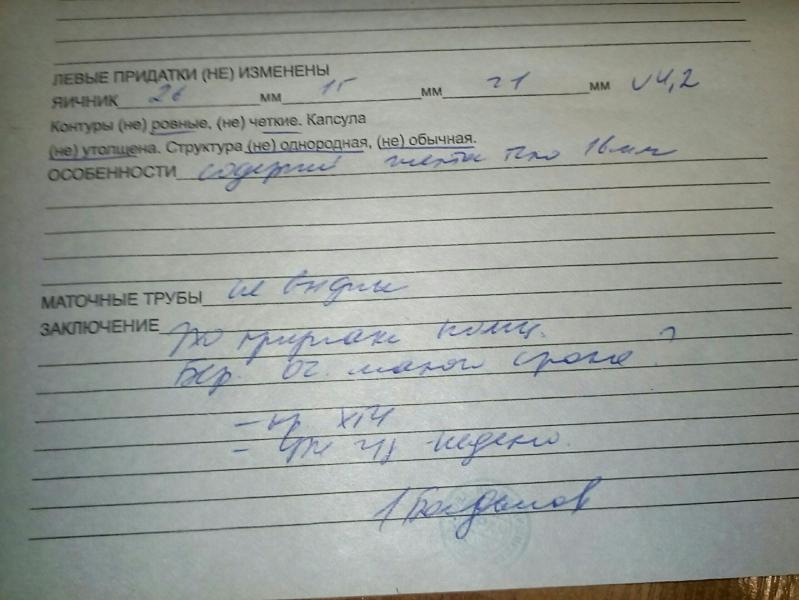 ЛЕВЫЕ ПРИДАТКИ (НЕ) ИЗМЕНЕНЫ
ЯИЧНИК 26 мм 15 мм 21 мм V 4,2
Контуры (не) ровные, (не) четкие. Капсула
(не) утолщена. Структура (не) однородная, (не) обычная.
ОСОБЕННОСТИ содержит желтое тело 16 мм
МАТОЧНЫЕ ТРУБЫ не видны
ЗАКЛЮЧЕНИЕ Эхо признаки
Бер. оч. малого срока ?
- кр. ХГЧ
- через неделю.